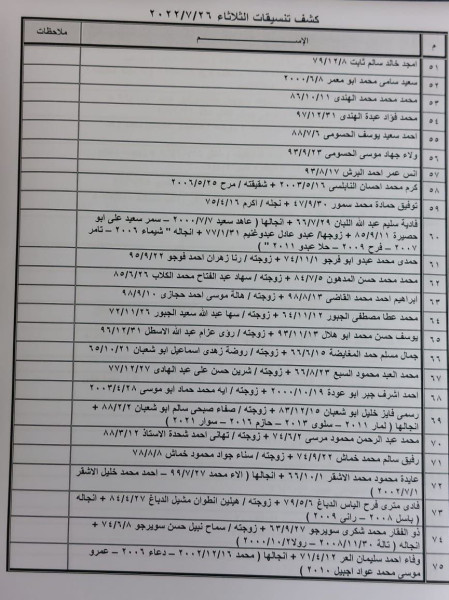 كشف تنسيقات الثلاثاء ٢٠٢٢/٧/٢٦
م الإســـم ملاحظات
٥١ امجد خالد سالم ثابت ٧٩/١٢/٨
٥٢ سعيد سامى محمد ابو معمر ٢٠٠٠/٦/٨
٥٣ محمد محمد محمد الهندى ٨٦/١٠/١١
٥٤ محمد فؤاد عبدة الهندى ٩٧/١٢/٣١
٥٥ احمد سعيد يوسف الحسومى ٨٨/٧/٦
٥٦ ولاء جهاد موسى الحسومى ٩٣/٩/٢٣
٥٧ انس عمر احمد البرش ٩٣/٨/١٧
٥٨ كرم محمد احسان النابلسى ٢٠٠٣/٥/١٦ + شقيقته / مرح ٢٠٠٦/٥/٢٥
٥٩ توفيق حمادة محمد سمور ٤٧/٩/٣٠ + نجله / اكرم ٧٥/٤/١٦
٦٠ فادية سليم عبد الله اللبان ٦٦/٧/٢٩ + انجالها ( عاهد سعيد ٢٠٠٠/٧/٧ – سمر سعيد على ابو
حصيرة ٨٥/٩/١١ + زوجها/ عبدو عادل عبدوغنيم ٧٧/١/٣١ + انجاله " شيماء ٢٠٠٦ – تامر
٢٠٠٧ – فرح ٢٠٠٩ – حلا عبدو ٢٠١١ " )
٦١ حمدى محمد عبدو ابو فرجو ٧٤/١١/١ + زوجته / رنا زهران احمد فوجو ٩٥/٩/٢٢
٦٢ محمد محمد حسن المدهون ٨٤/٧/٥ + زوجته / سهاد عبد الفتاح محمد الكلاب ٨٥/٦/٢٦
٦٣ ابراهيم احمد محمد القاضى ٩٨/٨/١٣ + زوجته / هالة موسى احمد حجازى ٩٨/٩/١٠
٦٤ محمد عطا مصطفى الجبور ٦٤/١١/٢ + زوجته / سها عبد الله سعيد الجبور ٧٢/١١/٢٦
٦٥ يوسف حسن محمد ابو هلال ٩٣/١١/١٣ + زوجته / رؤى عزام عبد الله الاسطل ٩٦/١٢/٣١
٦٦ جمال مسلم حمد المغايضة ٦٦/٦/١٥ + زوجته / روضة زهدى اسماعيل ابو شعبان ٦٥/١٠/٢١
٦٧ محمد العبد محمود السبع ٦٦/٨/٢٣ + زوجته / شرين حسن على عبد الهادى ٧٧/١٢/٢٧
٦٨ احمد اشرف جبر ابو عودة ٢٠٠٠/١٠/١٩ + زوجته / ايه محمد حماد ابو موسى ٢٠٠٣/٤/٢٨
٦٩ رسمى فايز خليل ابو شعبان ٨٣/١٢/١٥ + زوجته / صفاء صبحى سالم ابو شعبان ٨٨/٢/٢ +
انجالها ( لمار ٢٠١١ – سلوى ٢٠١٣ – حازم ٢٠١٦ – سوار ٢٠٢١ )
٧٠ محمد عبد الرحمن محمود مرسى ٧٤/٦/٢ + زوجته / تهانى احمد شحدة الاستاذ ٨٨/٣/١٢
٧١ رفيق سالم محمد خماش ٧٤/٩/٢٢ + زوجته / سناء جواد محمود خماش ٧٨/٨/٨
٧٢ عايدة محمود محمد الاشقر ٦٦/١٠/١ + انجالها ( الاء محمد ٩٩/٧/٢٧ – احمد محمد خليل الاشقر
٢٠٠٢/٧/١ )
٧٣ فادى مترى فرح الياس الدباغ ٧٩/٥/٦ + زوجته / هيلين انطوان مشيل الدباغ ٨٤/٤/٢٧ + انجاله
( باسل ٢٠٠٨ – رانى ٢٠٠٩ )
٧٤ ذو الفقار محمد شكرى سويرجو ٦٣/٩/٢٧ + زوجته / سماح نبيل حسن سويرجو ٧٤/٦/٨ +
انجاله ( تالة ٢٠٠٨/١١/٣٠ – رولا٢٠٠٠/١٠/٢ )
٧٥ وفاء احمد سليمان العر ٧١/٤/١٢ + انجالها ( محمد ٢٠٠٢/١٢/١٦ – دعاء ٢٠٠٦ – عمرو
موسى محمد عواد اجبيل ٢٠١٠ )